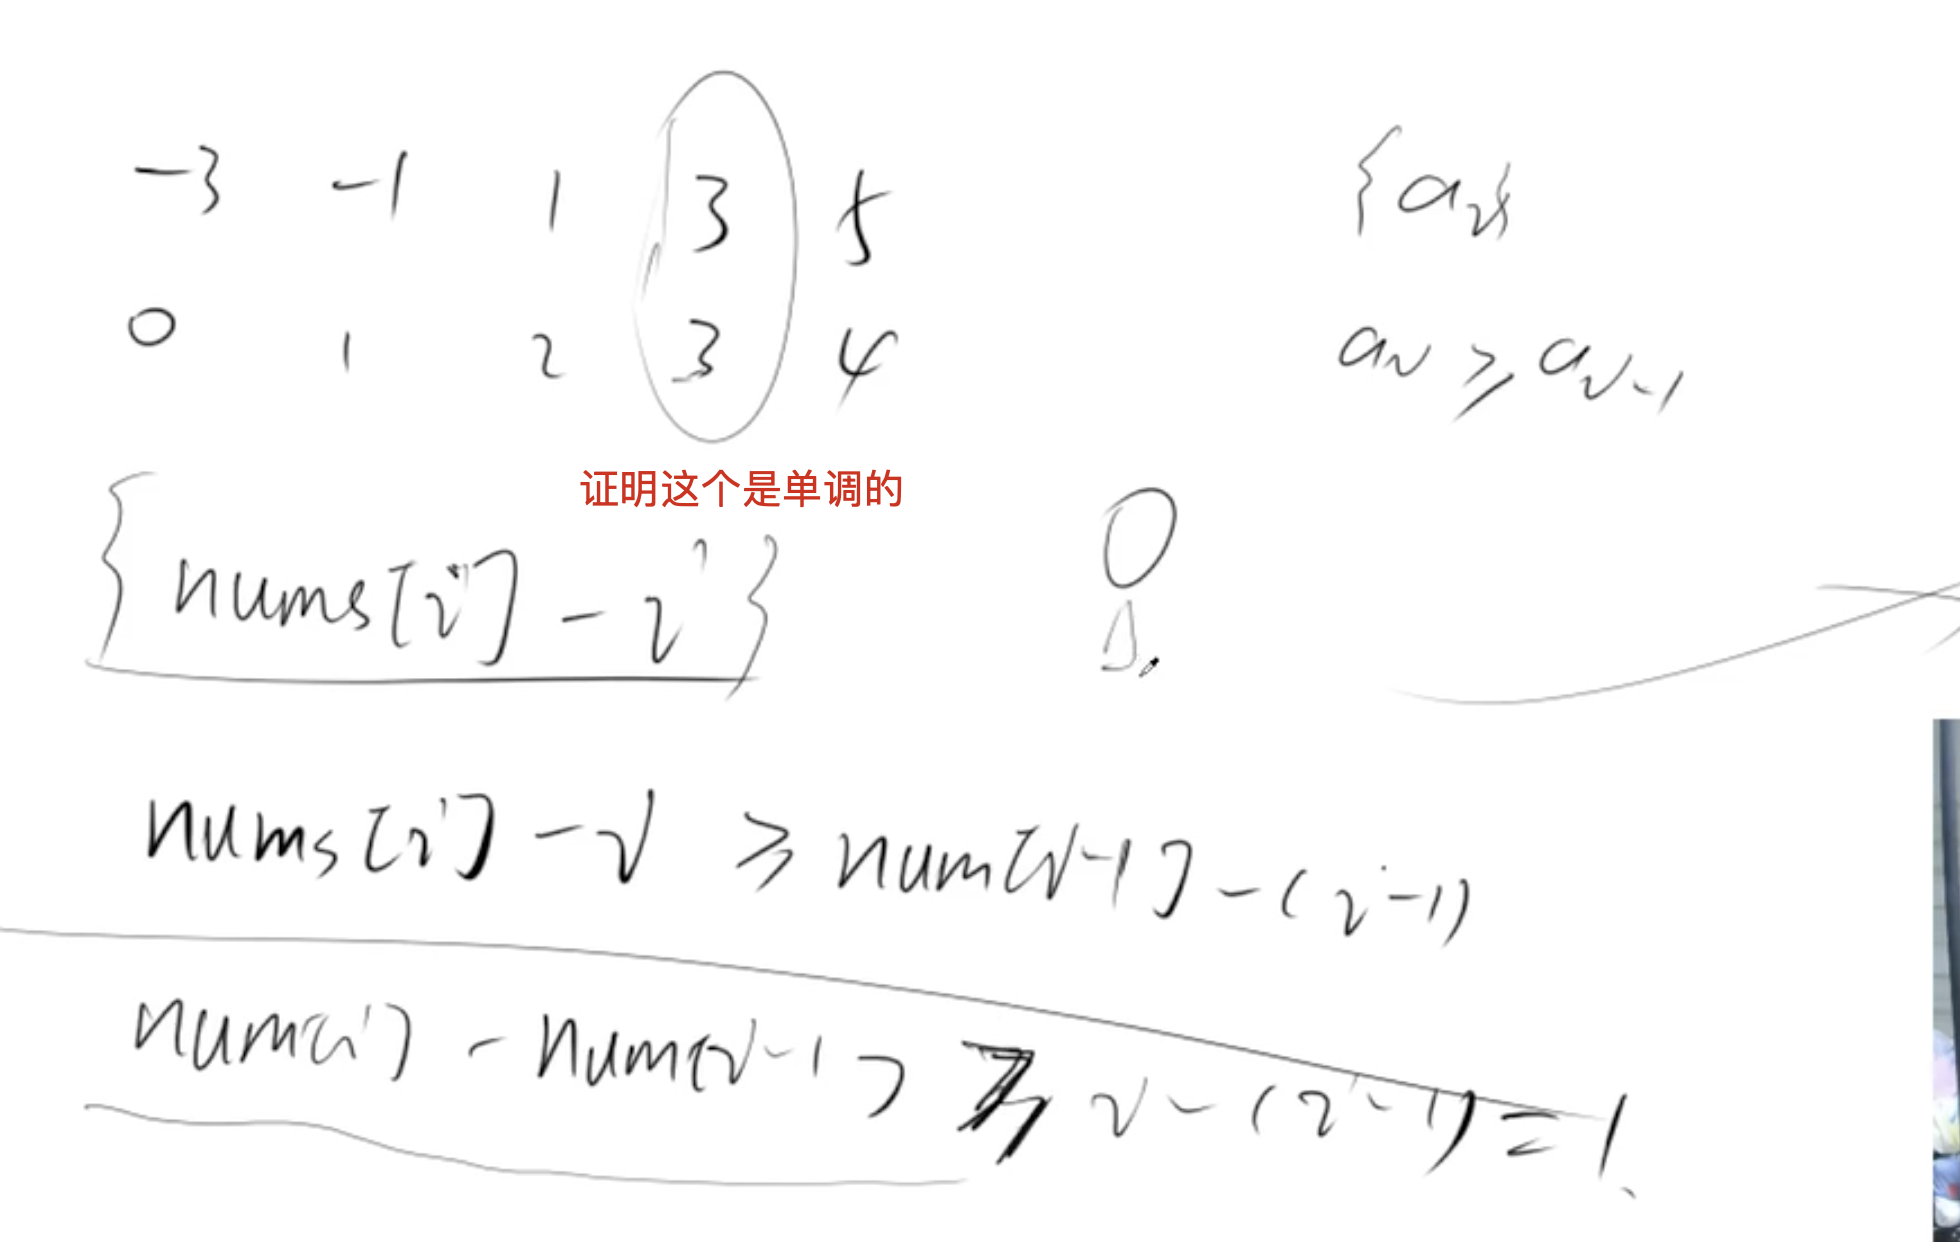 -3 -1 1 3 5
{ai}
0 1 2 3 4
ai ≥ ai-1
证明这个是单调的
{nums[i] - i}
0
nums[i] - i ≥ num[i-1] - (i-1)
num[i] - num[i-1] ≥ i - (i-1) = 1.